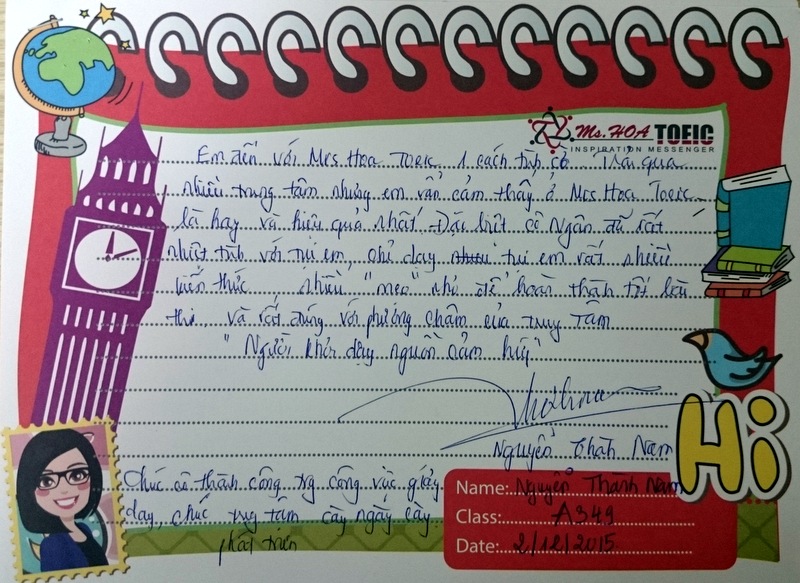 Ms. HOA TOEIC
INSPIRATION MESSENGER
Em đến với Mrs Hoa Toeic 1 cách tình cờ Trải qua
nhiều trung tâm nhưng em vẫn cảm thấy ở Mrs Hoa Toeic
là hay và hiệu quả nhất. Đặc biệt cô Ngân đã rất
nhiệt tình với tụi em, chỉ dạy tụi em rất nhiều
kiến thức nhiều "mẹo" nhỏ để hoàn thành tốt bài
thi, và rất đúng với phương châm của trung tâm
"Người khơi dậy nguồn cảm hứng"
Nguyễn Thành Nam
Chúc cô thành công trg công việc giảng
dạy, chúc trug tâm càng ngày càng
phát triển
Hi
Name: Nguyễn Thành Nam
Class: A349
Date: 2/12/2015